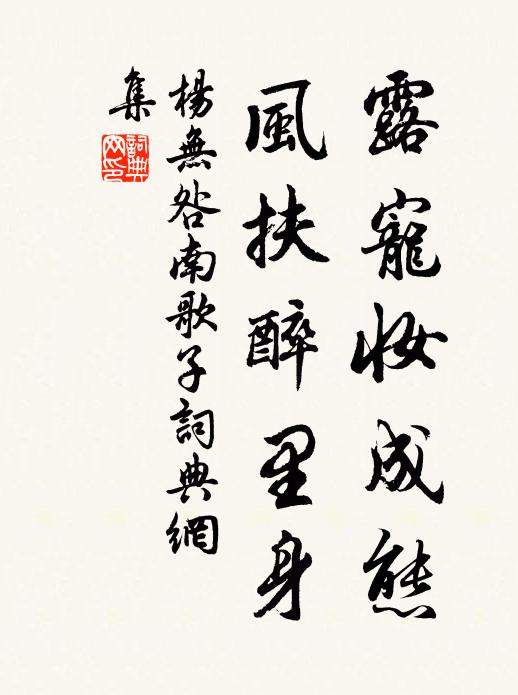 露寵妝成態
風扶醉里身
楊無咎南歌子詞典網
集
詞典網印